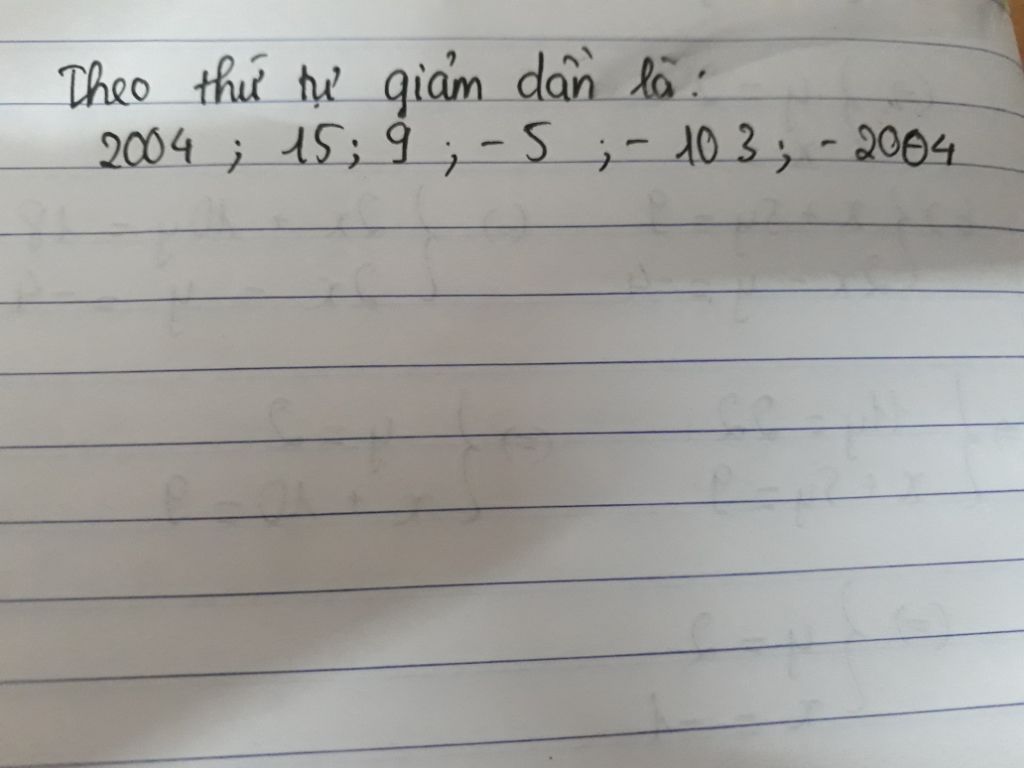 Theo thứ tự giảm dần là:
2004 ; 15; 9 ; - 5 ; - 103 ; - 2004